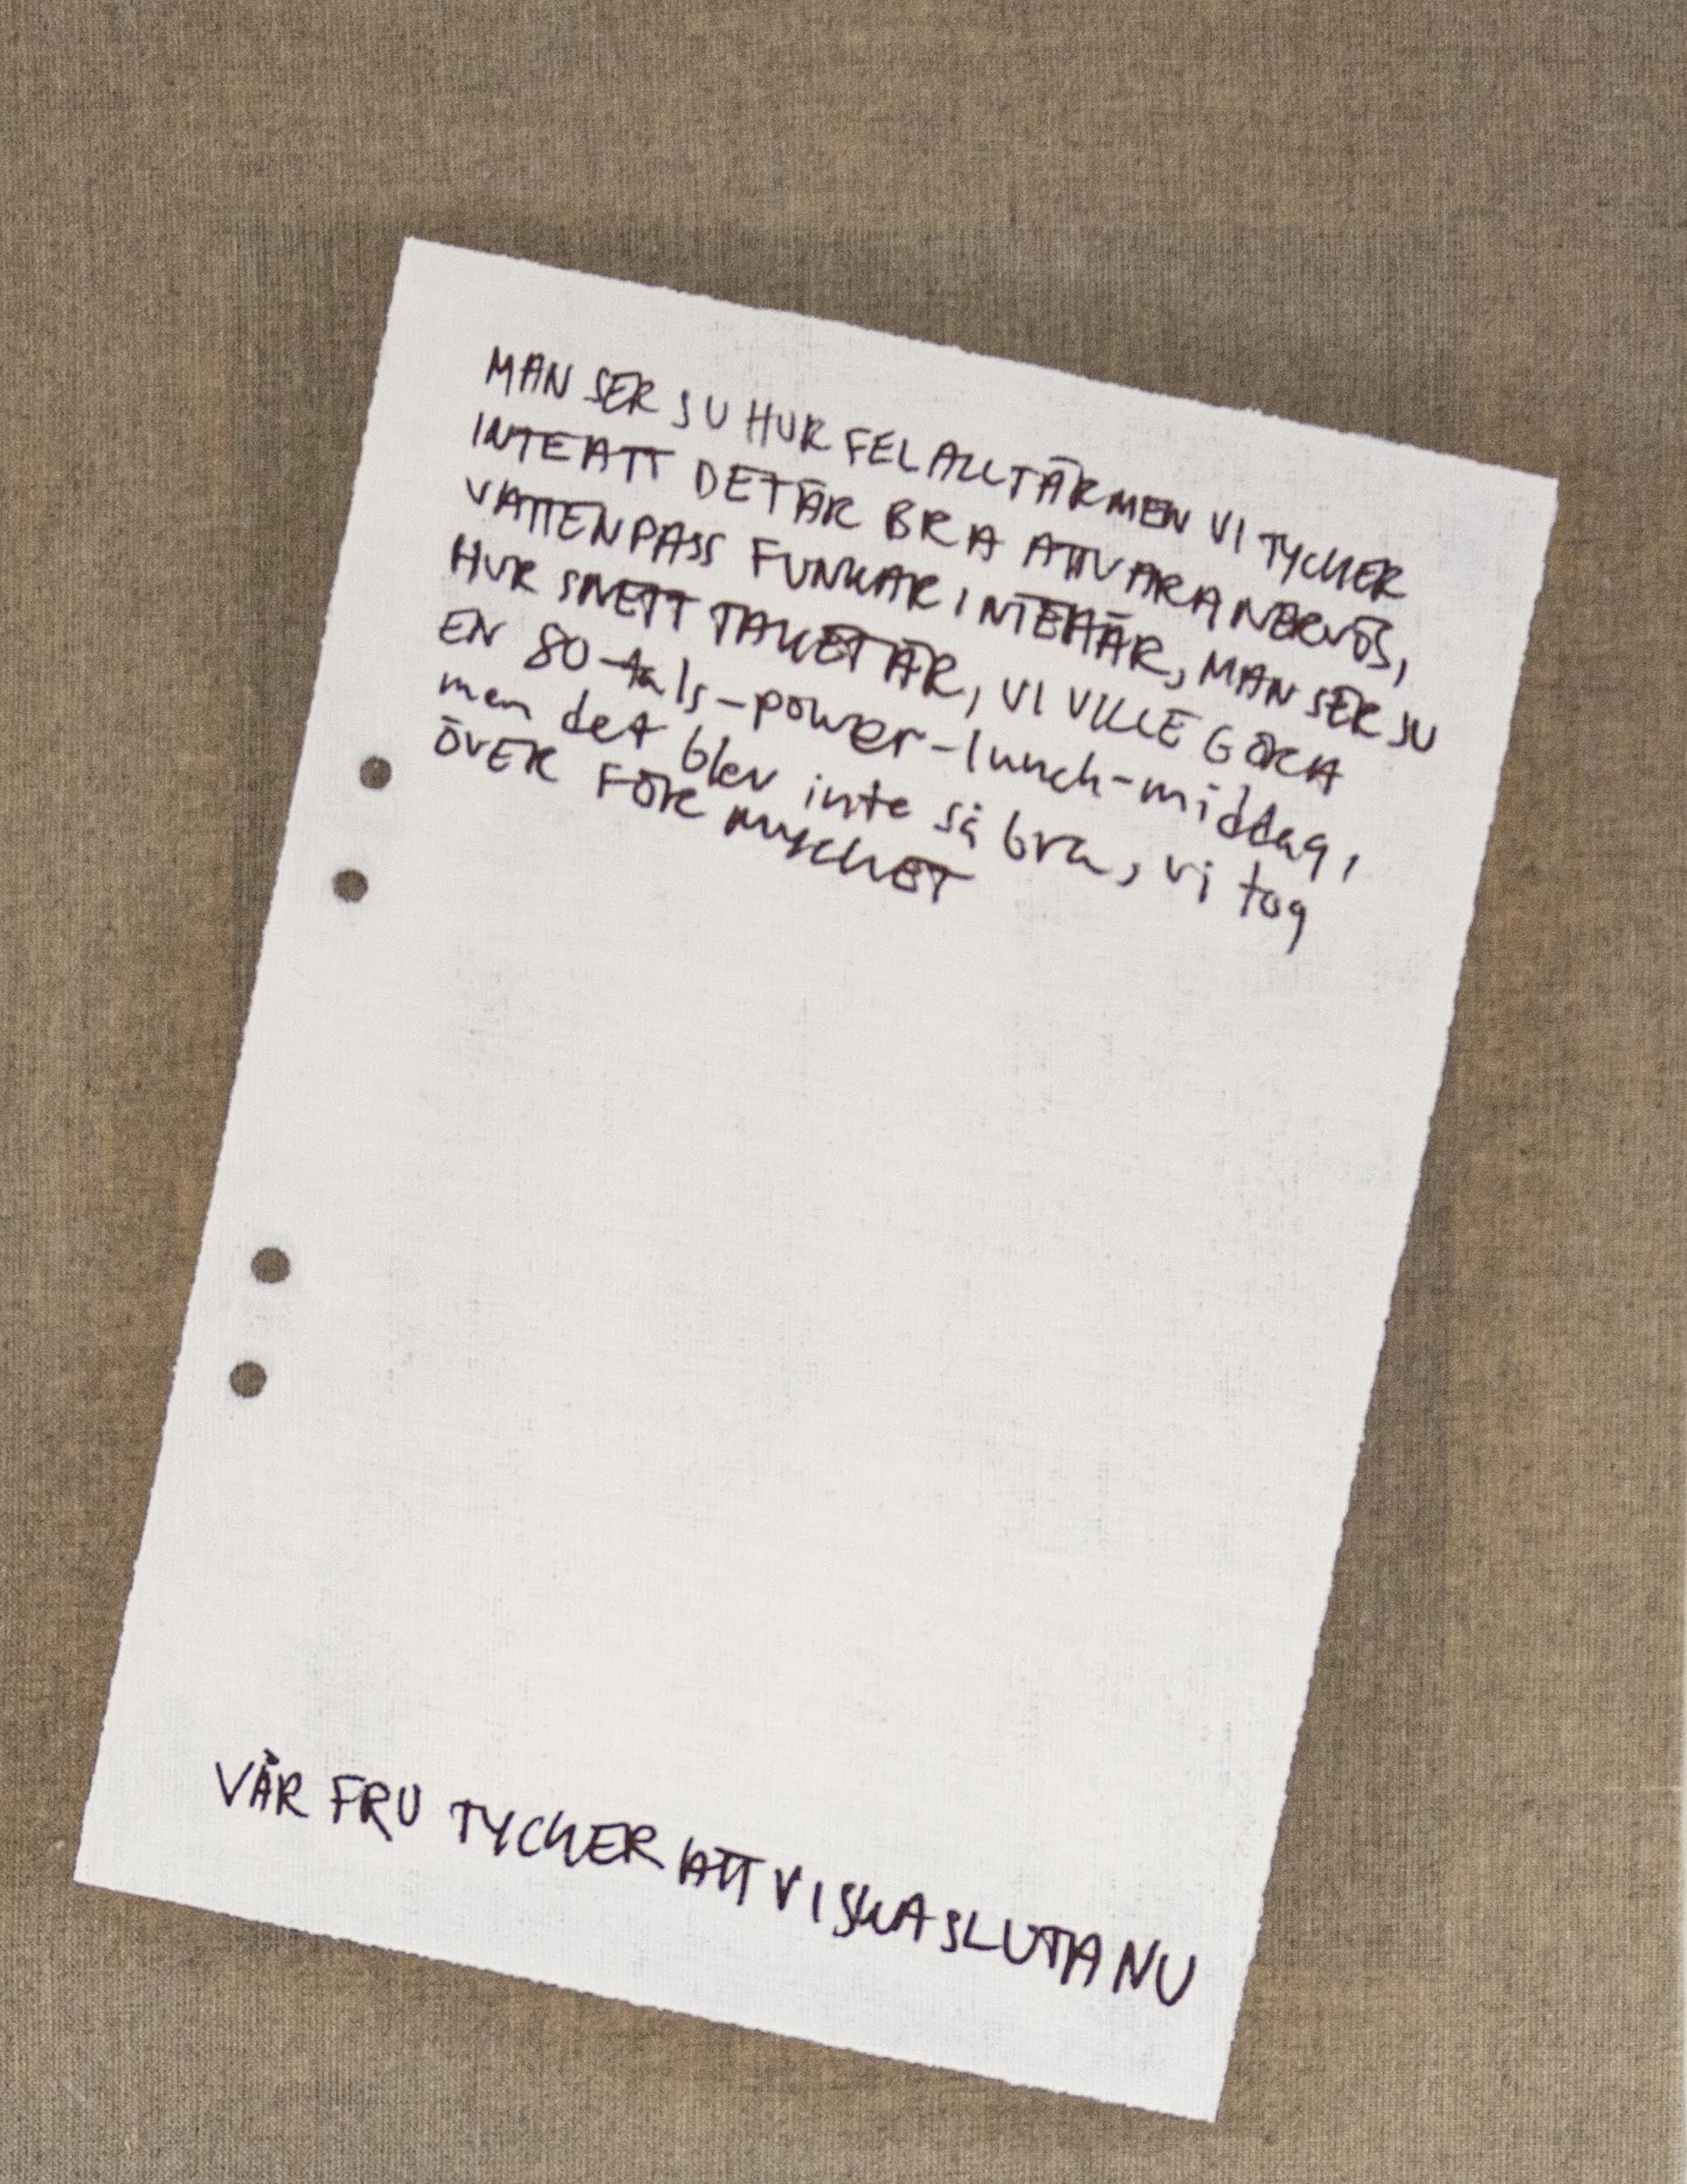 MAN SER JU HUR FEL ALLT ÄR MEN VI TYCKER
INTE ATT DET ÄR BRA ATT VARA NERVÖS,
VATTENPASS FUNKAR INTE HÄR, MAN SER JU
HUR SNETT TAKET ÄR, VI VILLE GÖRA
EN 80-tals-power-lunch-middag,
men det blev inte så bra, vi tog
ÖVER FÖR MYCKET
VÅR FRU TYCKER ATT VI SKA SLUTA NU